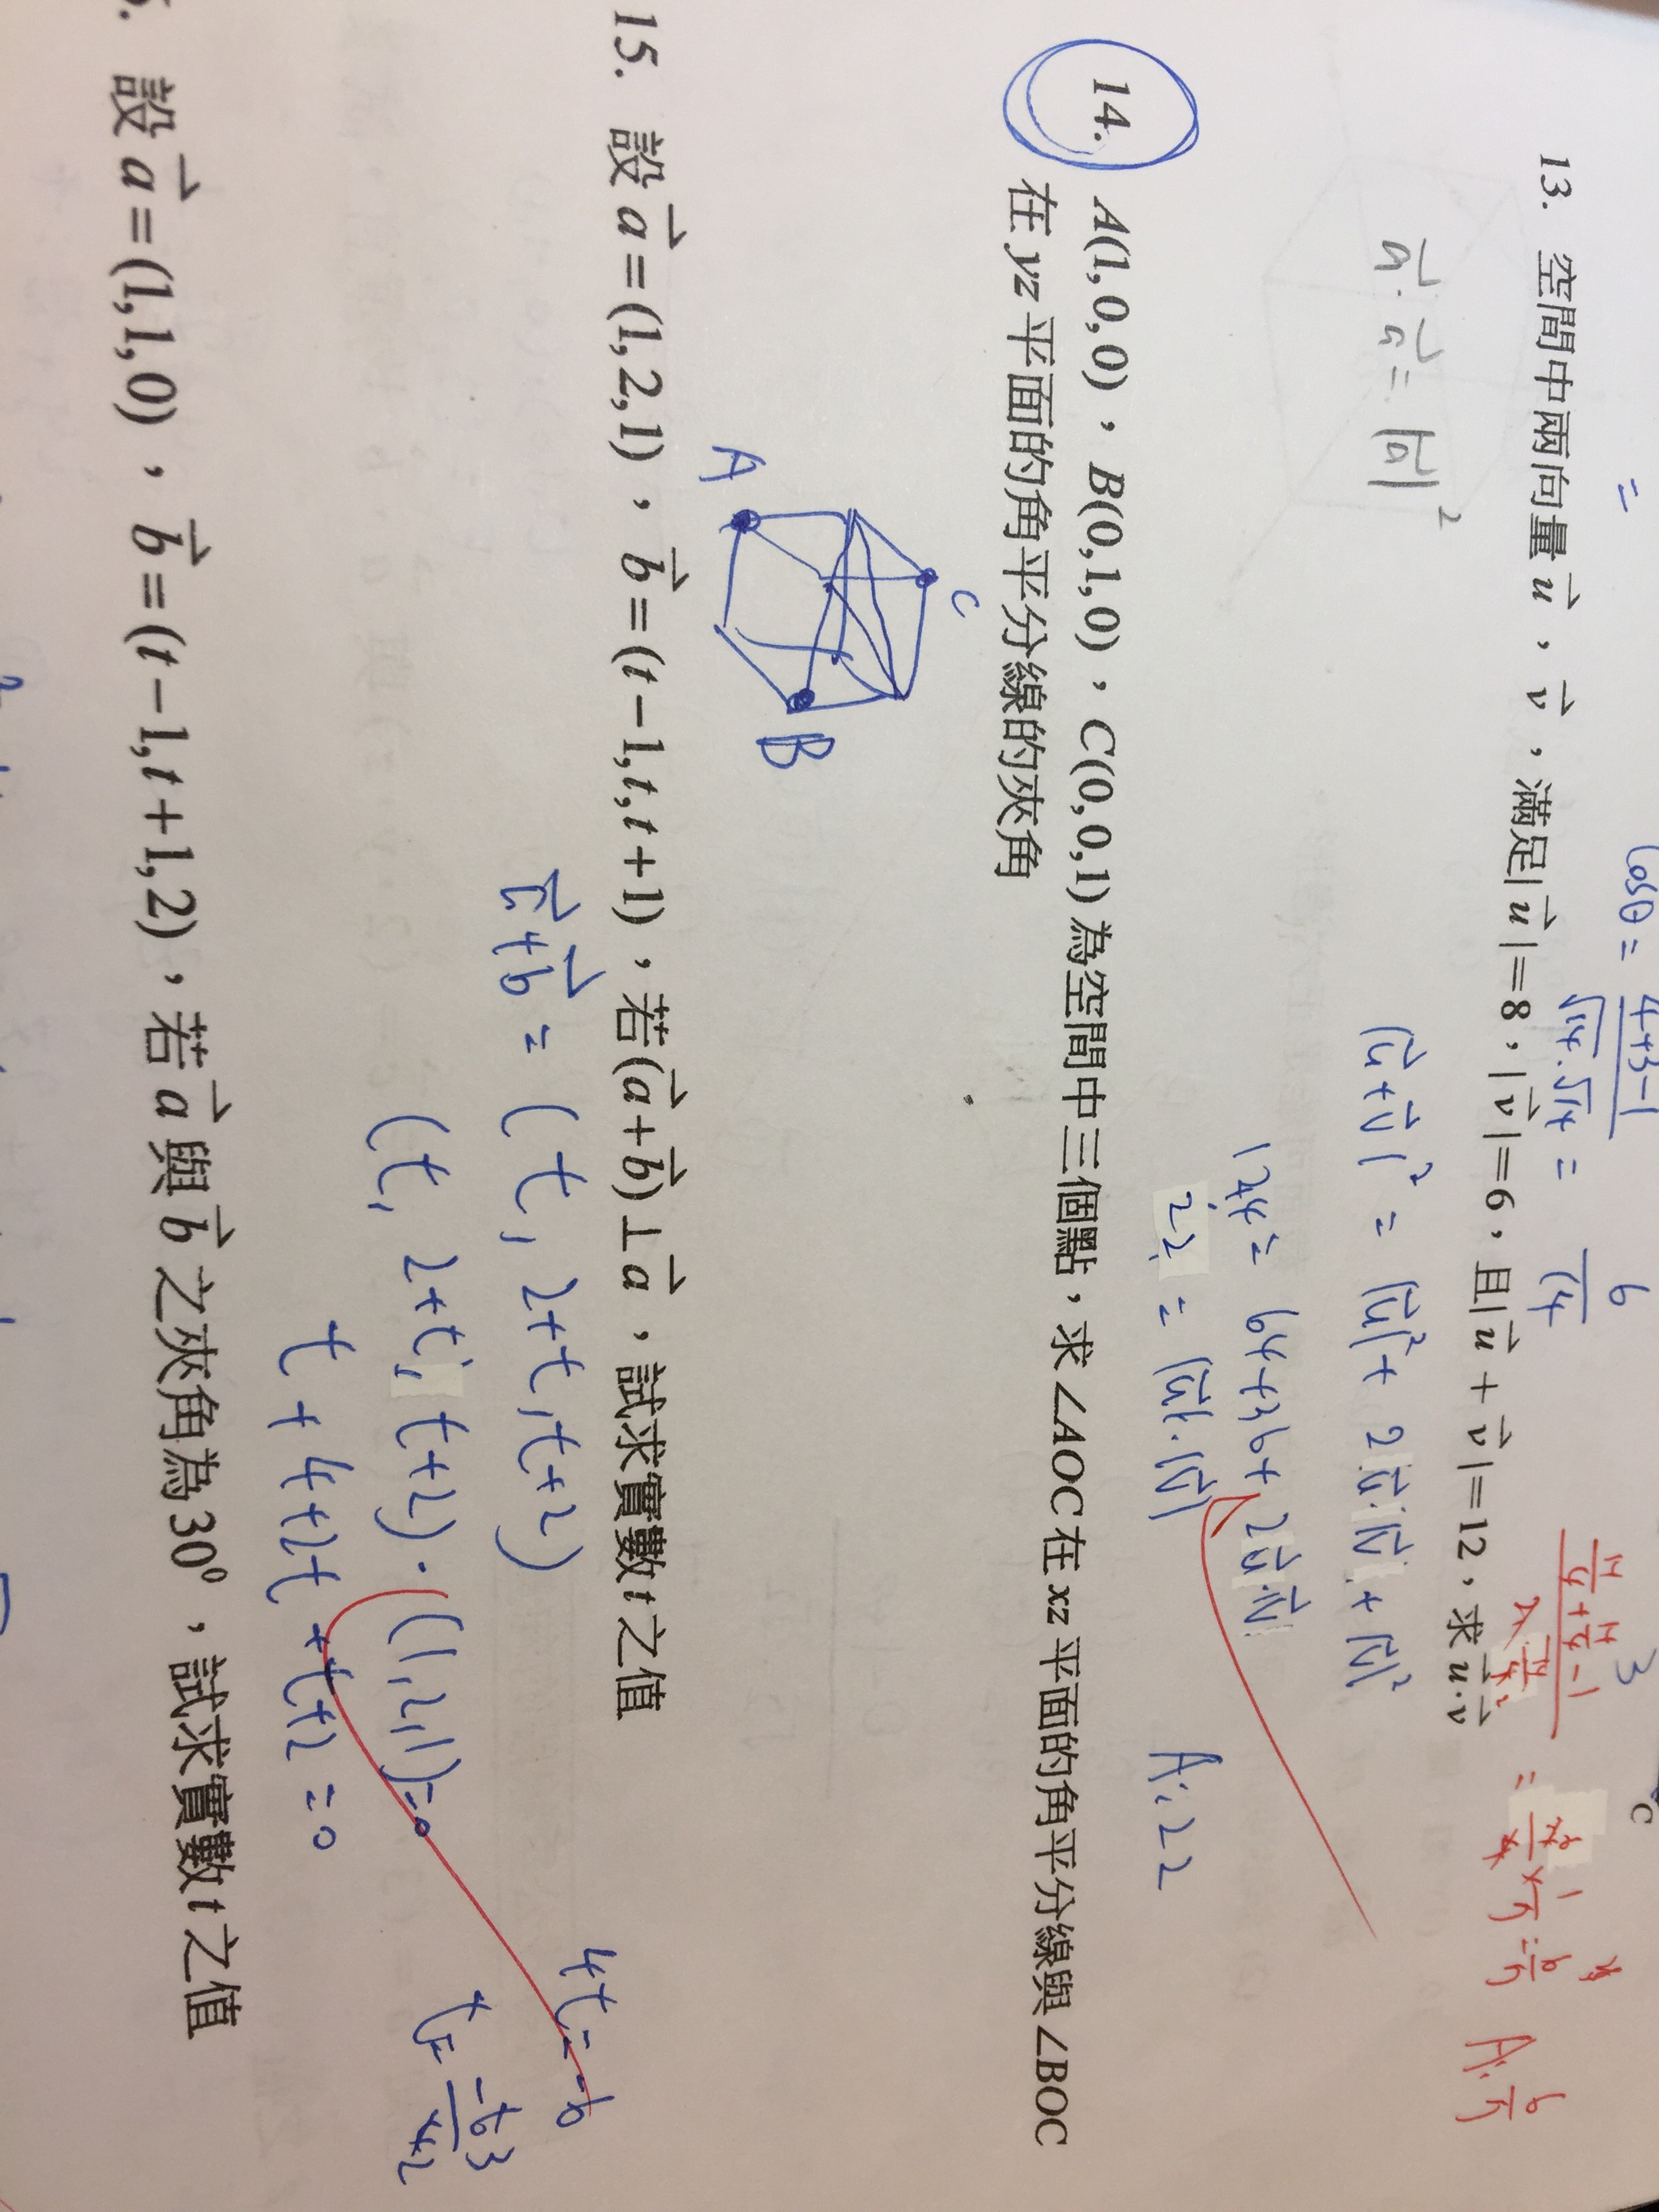 =
cosθ = 4+3-1 / √14·√14 = 6/14
C
13. 空間中兩向量 u⃗，v⃗，滿足|u⃗|=8，|v⃗|=6，且|u⃗ + v⃗|=12，求 u⃗·v⃗
A: 6/7
u⃗·u⃗ = |u⃗|²
|u⃗+v⃗|² = |u⃗|² + 2u⃗·v⃗ + |v⃗|²
144 = 64+36+2u⃗·v⃗
22 = |u⃗|·|v⃗|
A: 22
14. A(1,0,0)，B(0,1,0)，C(0,0,1)為空間中三個點，求∠AOC在xz平面的角平分線與∠BOC
在yz平面的角平分線的夾角
C
A
B
15. 設 a⃗=(1,2,1)，b⃗=(t−1,t,t+1)，若(a⃗+b⃗)⊥a⃗，試求實數t之值
a⃗+b⃗ = (t, 2+t, t+2)
(t, 2+t, t+2)·(1,2,1)=0
t + 4+2t + t+2 = 0
4t=-6
t= -6 3 / 4 2
設 a⃗=(1,1,0)，b⃗=(t−1,t+1,2)，若 a⃗ 與 b⃗ 之夾角為30⁰，試求實數t之值